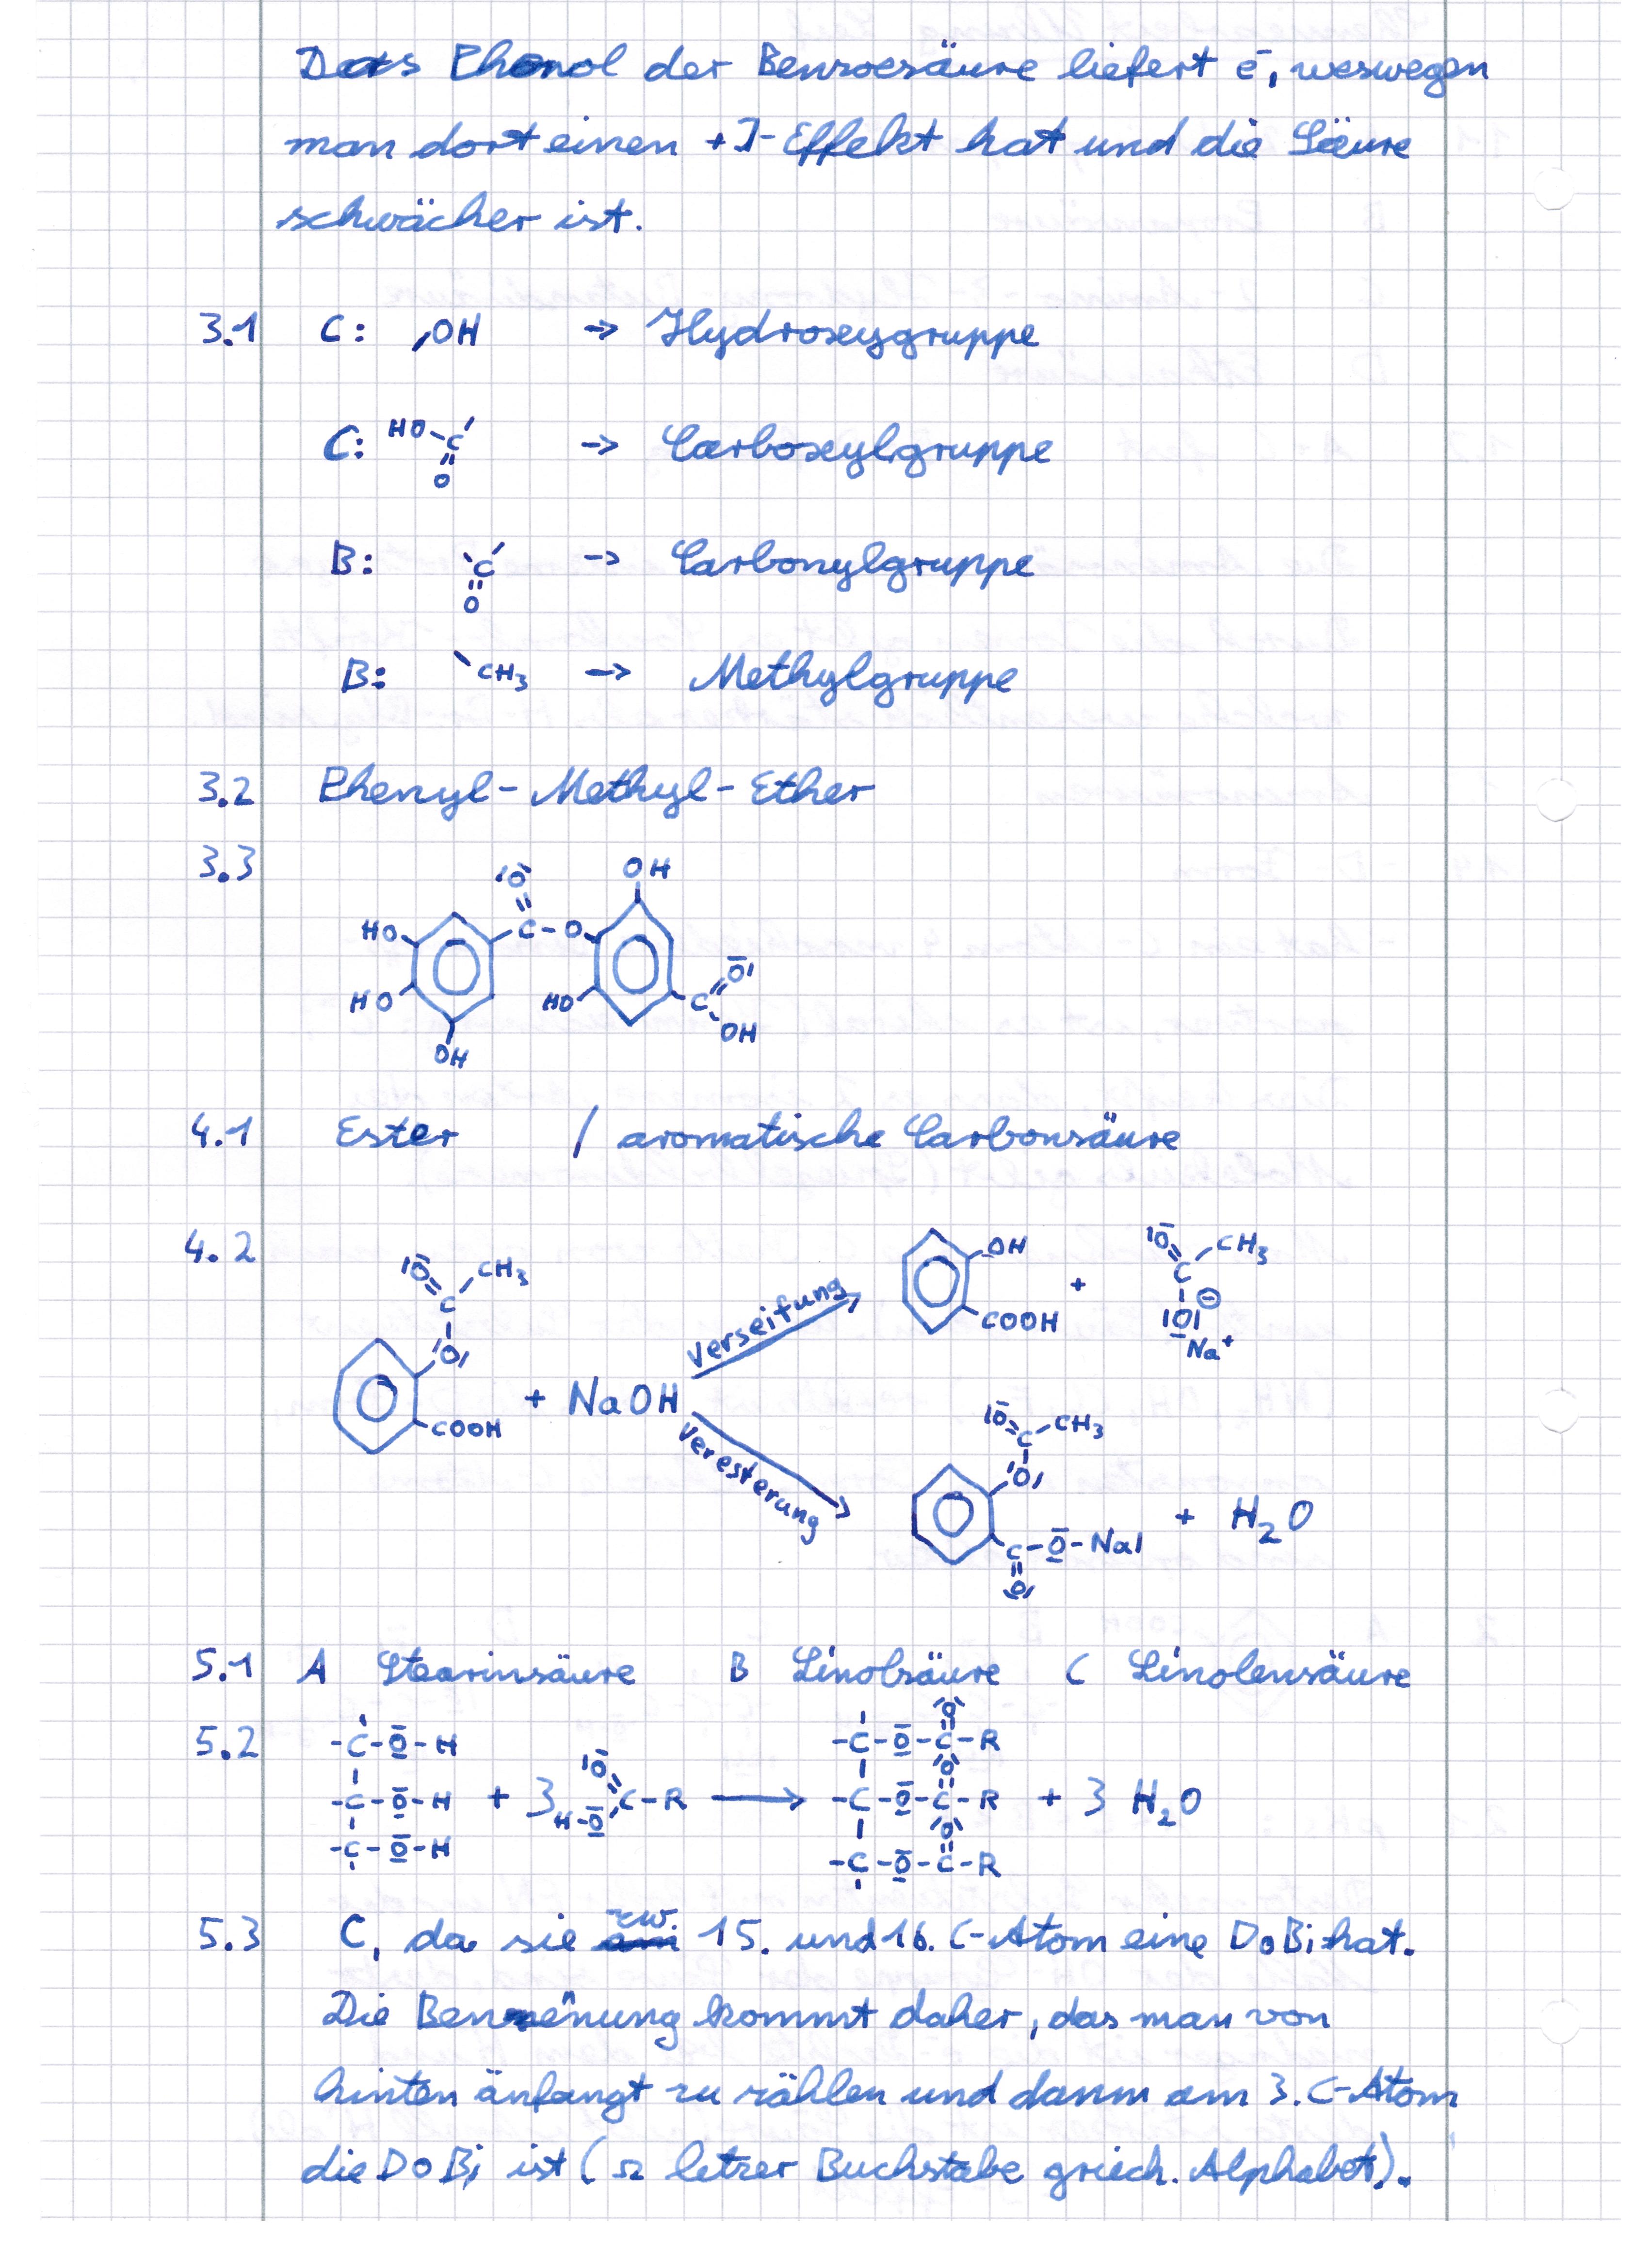 Das Phenol der Benzoesäure liefert e⁻, weswegen
man dort einen +I-Effekt hat und die Säure
schwächer ist.
3.1 C: OH → Hydroxygruppe
C: HO-C=O → Carboxylgruppe
B: C=O → Carbonylgruppe
B: CH3 → Methylgruppe
3.2 Phenyl-Methyl-Ether
3.3
O OH
HO C-O
HO HO C O
OH OH
4.1 Ester / aromatische Carbonsäure
4.2
O CH3
C
O
COOH
+ NaOH
Verseifung
OH
COOH
+
O CH3
C
O ⊖
Na+
Veresterung
O C CH3
O
C-O-Na
O
+ H2O
5.1 A Stearinsäure B Linolsäure C Linolensäure
5.2
-C-O-H O -C-O-C-R
-C-O-H + 3 H-O C-R → -C-O-C-R + 3 H2O
-C-O-H -C-O-C-R
5.3 C, da sie zw. 15. und 16. C-Atom eine DoBi hat.
Die Benennung kommt daher, das man von
hinten anfängt zu zählen und dann am 3. C-Atom
die DoBi ist (Ω letzer Buchstabe griech. Alphabet).